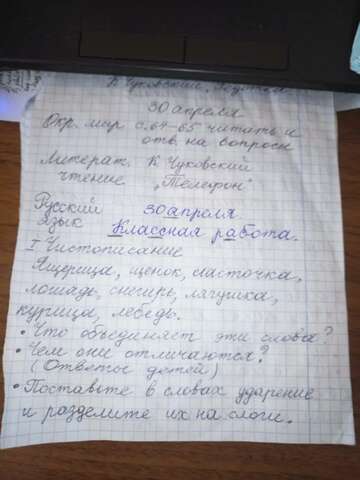 К Чуковский
30 апреля
Окр. мир с. 64-65 читать и
отв. на вопросы
Литерат. К Чуковский
чтение "Телефон"
Русский 30 апреля.
язык Классная работа.
I Чистописание
Ящерица, щенок, ласточка,
лошадь, снегирь, лягушка,
курица, лебедь.
• Что объединяет эти слова?
• Чем они отличаются?
(Ответы детей)
• Поставьте в словах ударение
и разделите их на слоги.